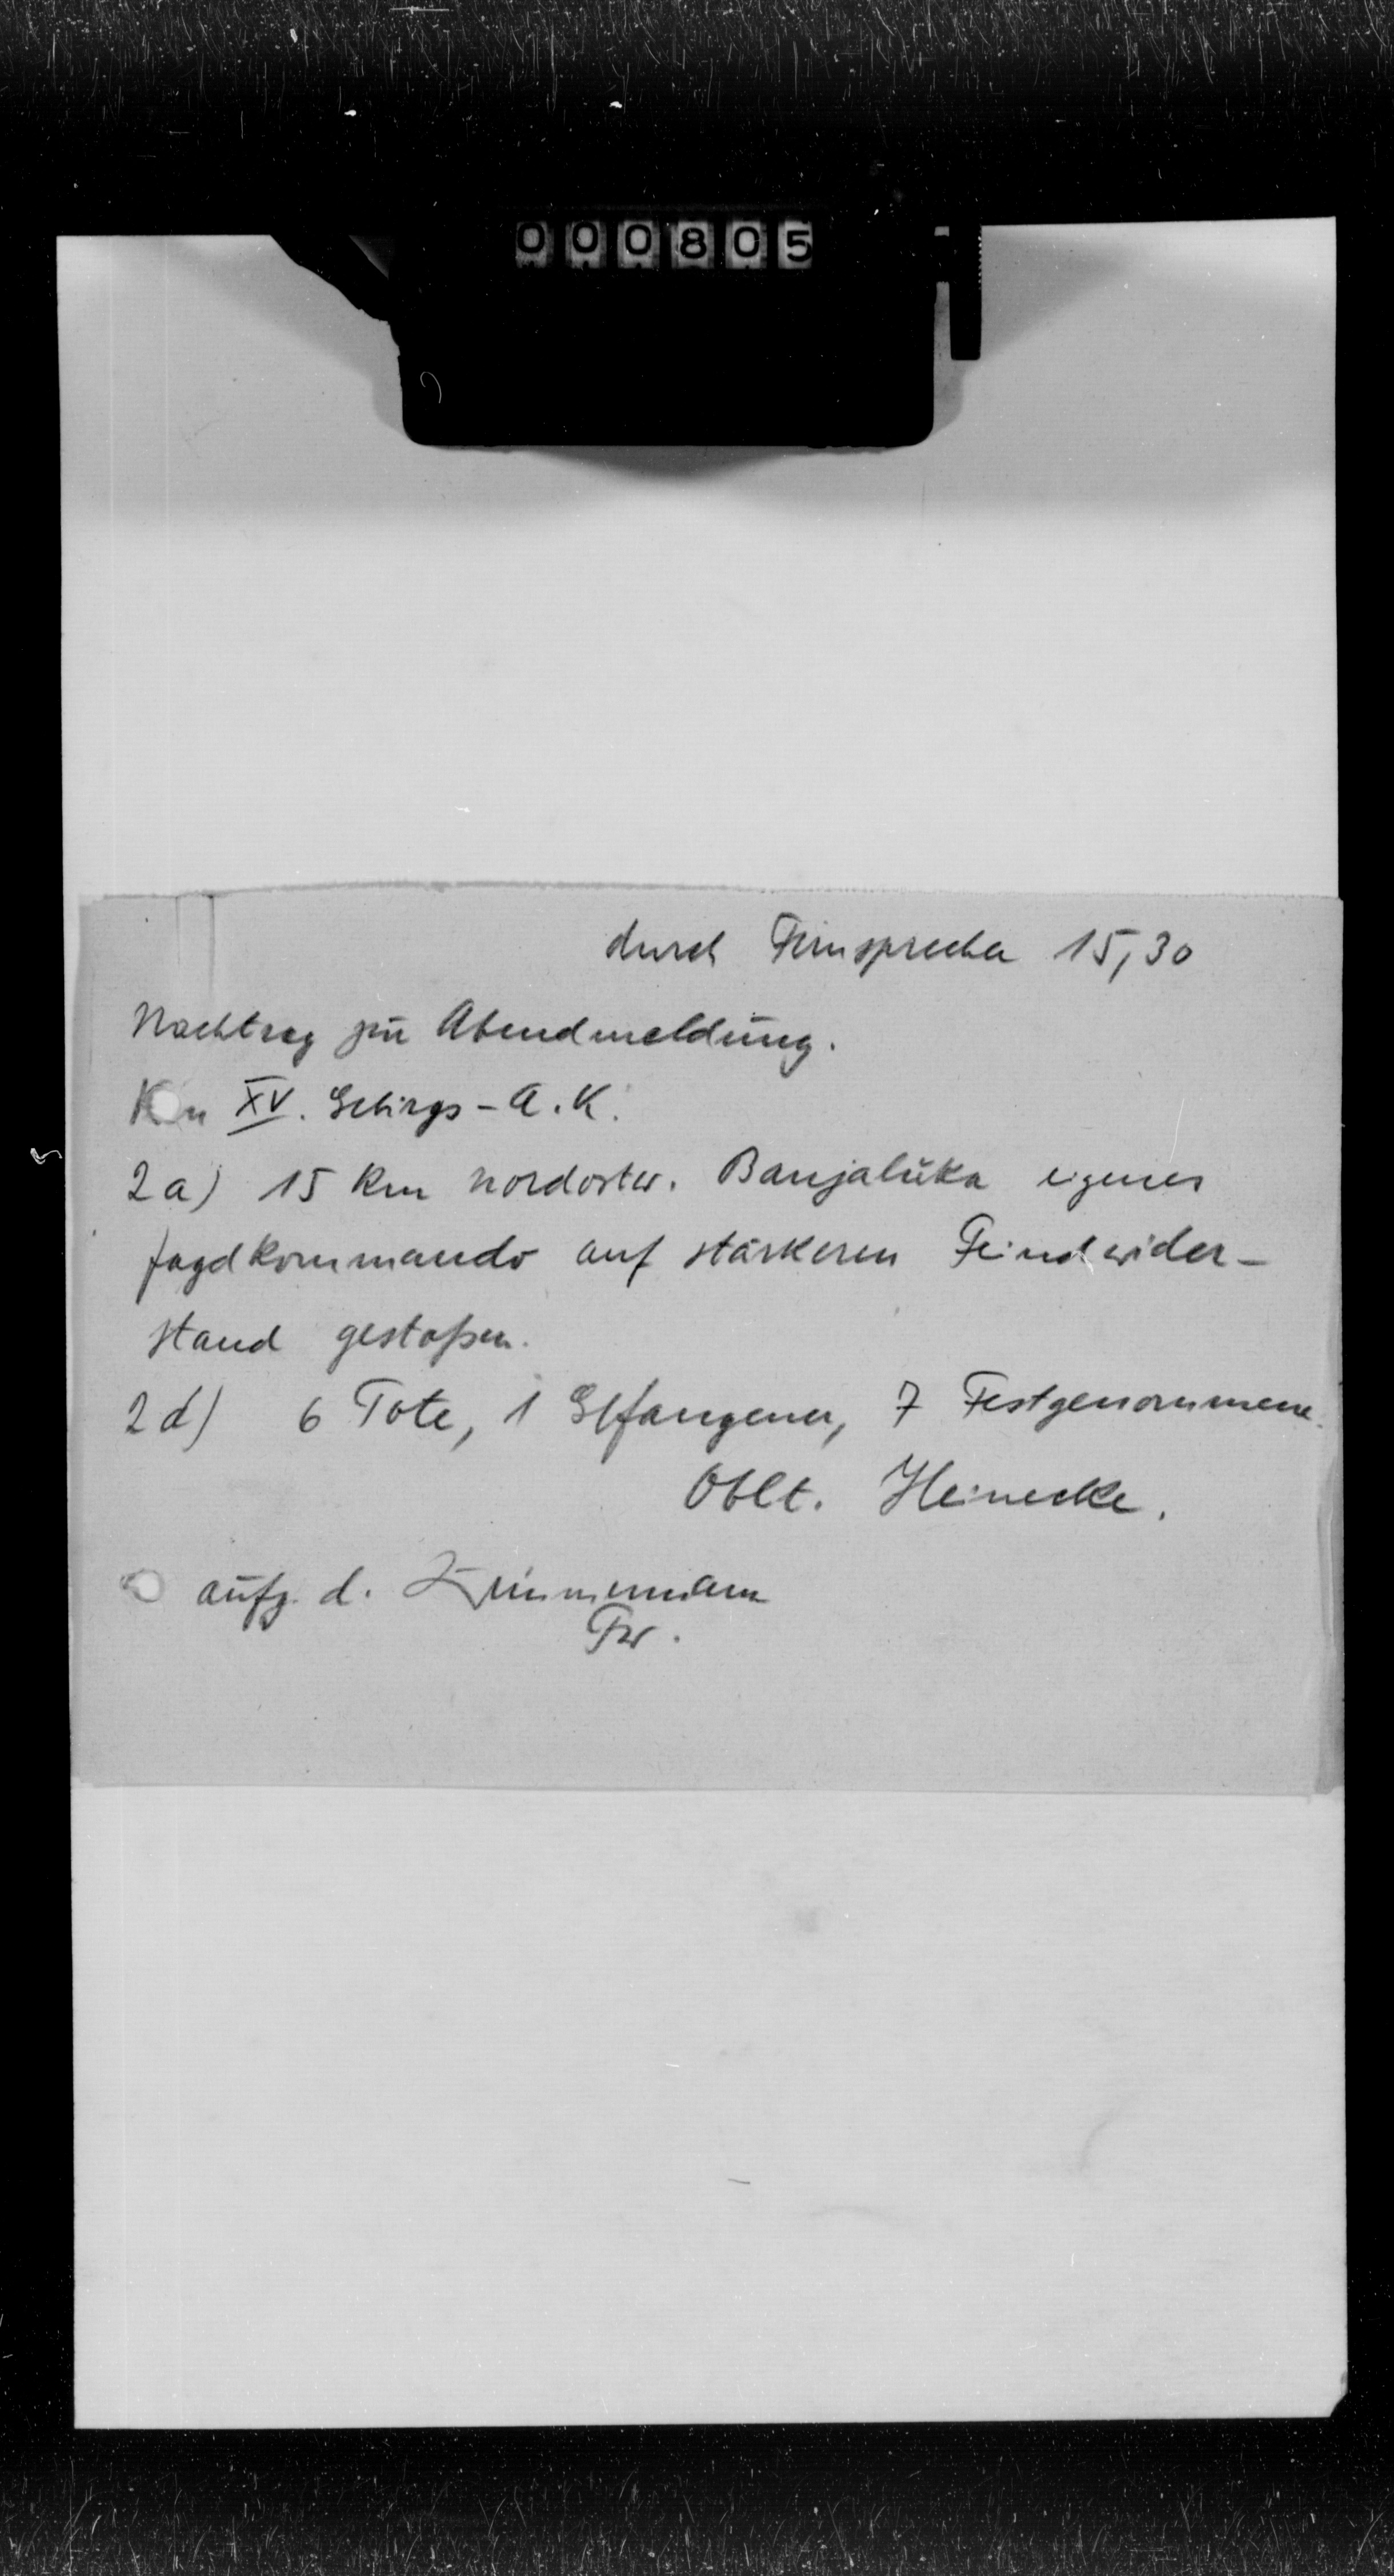 000805
durch Fernsprecher 15,30
Nachtrag zur Abendmeldung.
XV. Gebirgs-A.K.
2a) 15 km nordostw. Banjaluka eigenes
Jagdkommando auf stärkeren Feindwider-
stand gestoßen.
2d) 6 Tote, 1 Gefangener, 7 Festgenommene.
Oblt. Heinecke.
aufg. d. Zimmermann